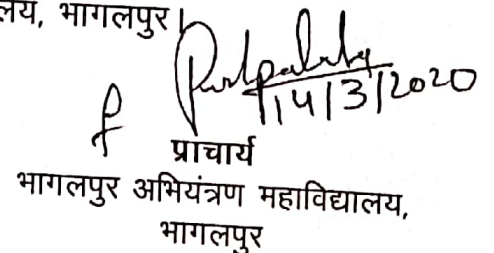 लय, भागलपुर।
14/3/2020
प्राचार्य
भागलपुर अभियंत्रण महाविद्यालय,
भागलपुर